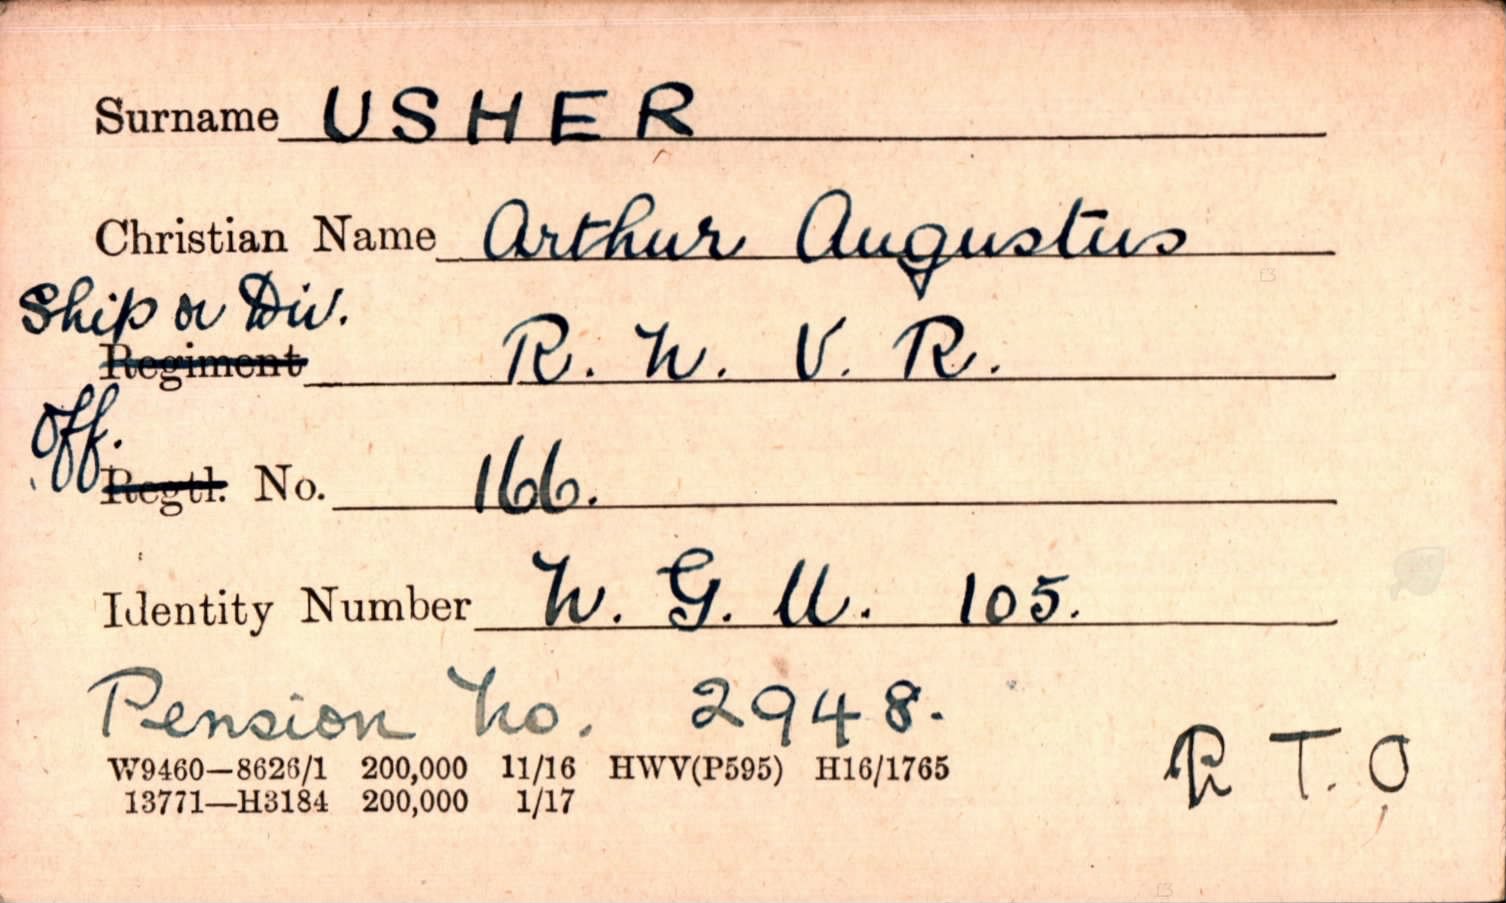 Surname USHER
Christian Name Arthur Augustus
Ship or Div.
Regiment R. N. V. R.
Off.
Regtl. No. 166.
Identity Number N. G. U. 105.
Pension No. 2948.
W9460—8626/1 200,000 11/16 HWV(P595) H16/1765
13771—H3184 200,000 1/17
P. T. O